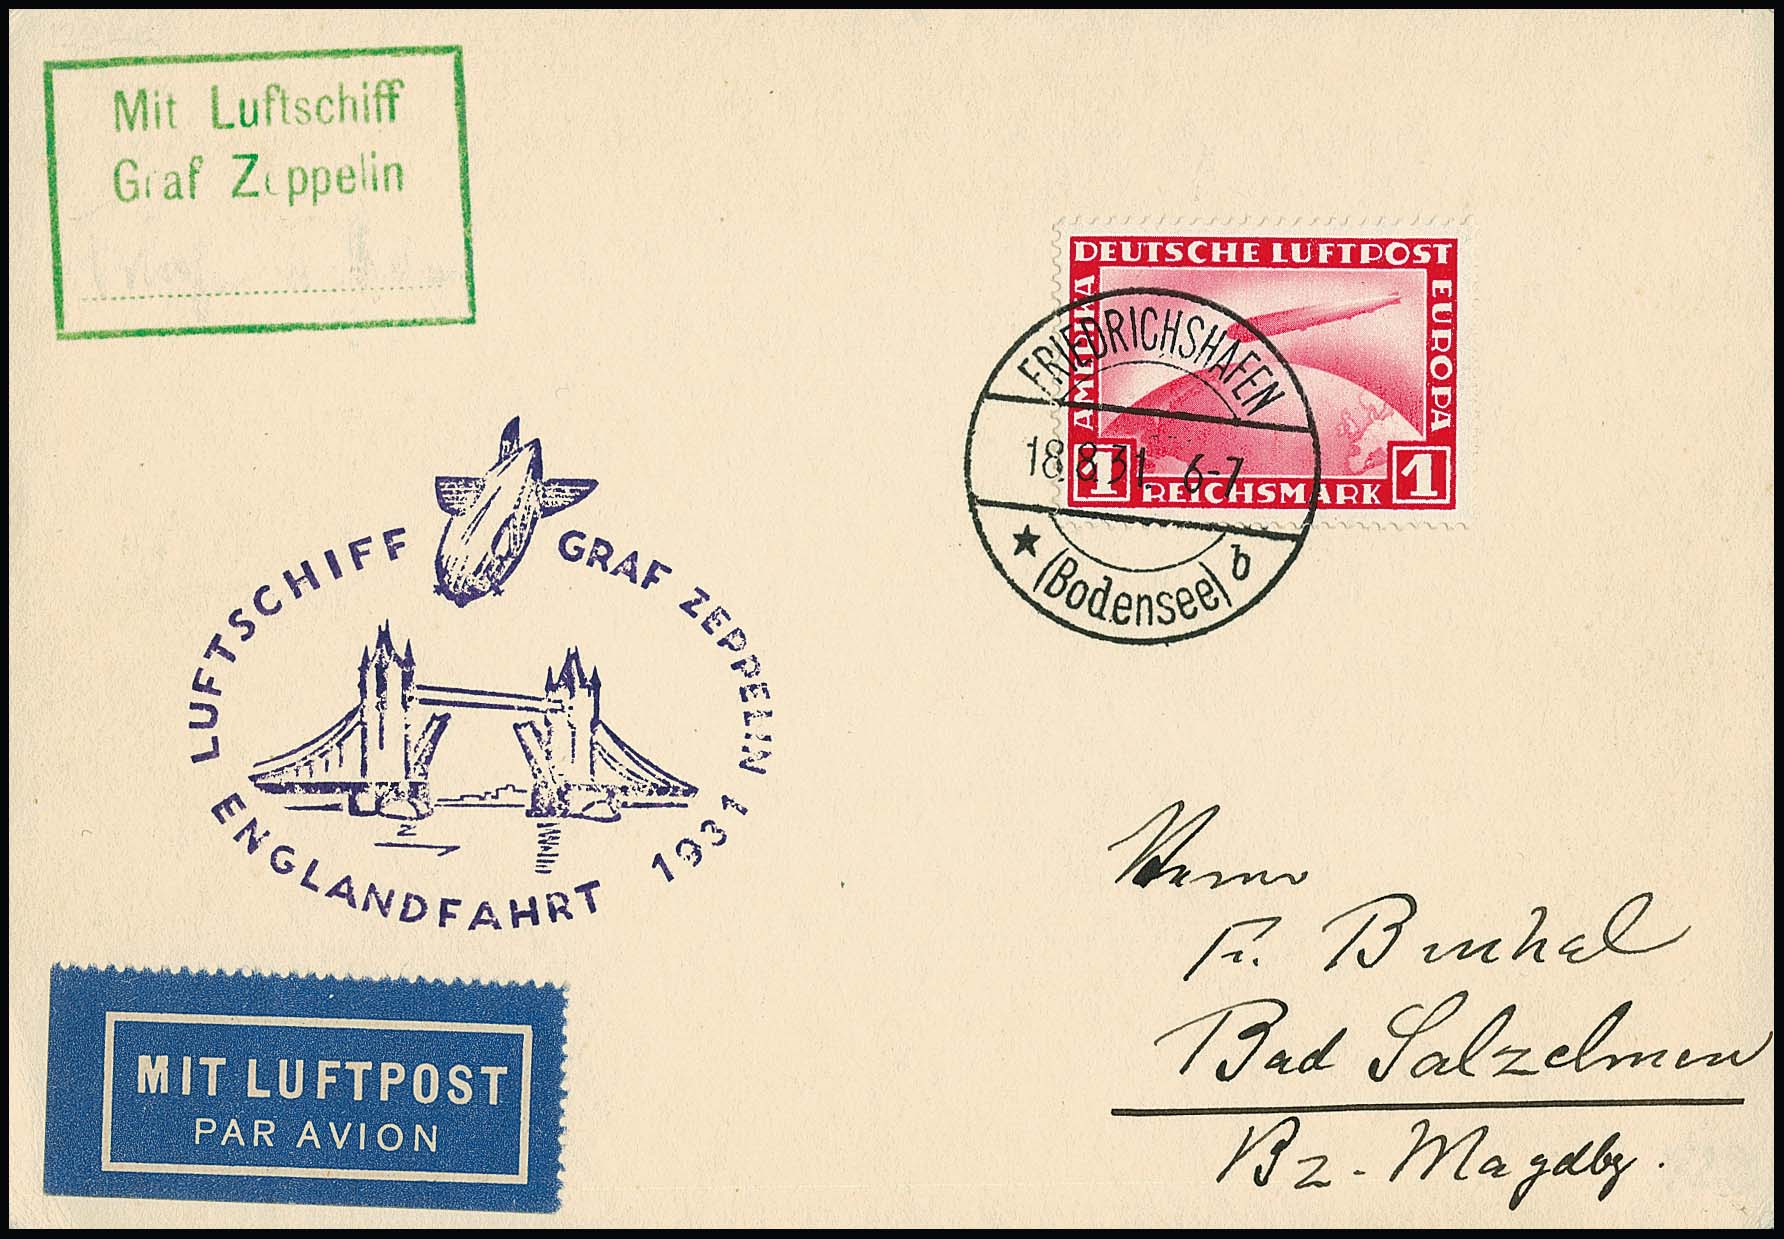 Mit Luftschiff
Graf Zeppelin
DEUTSCHE LUFTPOST
AMERIKA
EUROPA
1 REICHSMARK 1
FRIEDRICHSHAFEN
18.8.31. 6-7
★ (Bodensee) b
LUFTSCHIFF GRAF ZEPPELIN
ENGLANDFAHRT 1931
MIT LUFTPOST
PAR AVION
Herrn
Fr.
Bad Salzelmen
Bz. Magdbg.